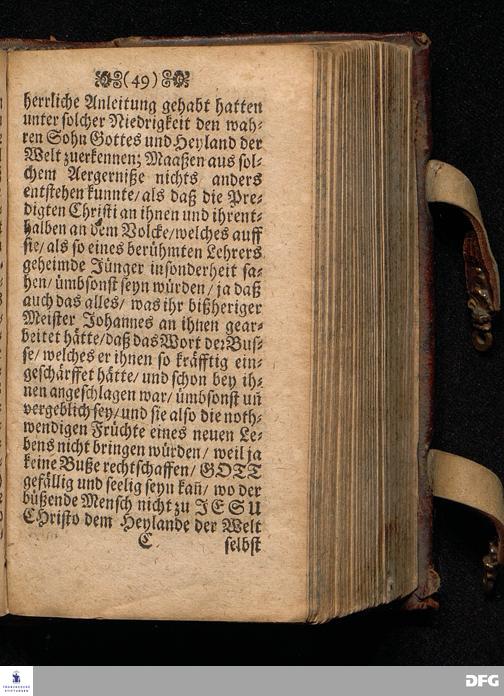 (49)
herrliche Anleitung gehabt hatten
unter solcher Niedrigkeit den wah-
ren Sohn Gottes und Heyland der
Welt zuerkennen; Maaßen aus sol-
chem Aergerniße nichts anders
entstehen kunnte/ als daß die Pre-
digten Christi an ihnen und ihrent-
halben an dem Volcke/ welches auff
sie/ als so eines berühmten Lehrers
geheimde Jünger insonderheit sa-
hen/ ümbsonst seyn würden/ ja daß
auch das alles/ was ihr bißheriger
Meister Johannes an ihnen gear-
beitet hätte/ daß das Wort der Bus-
se/ welches er ihnen so kräfftig ein-
geschärffet hätte/ und schon bey ih-
nen angeschlagen war/ ümbsonst uñ
vergeblich sey/ und sie also die noth-
wendigen Früchte eines neuen Le-
bens nicht bringen würden/ weil ja
keine Buße rechtschaffen/ GOTT
gefällig und seelig seyn kañ/ wo der
büßende Mensch nicht zu JESU
CHristo dem Heylande der Welt
C selbst
FRANCKESCHE
STIFTUNGEN
DFG